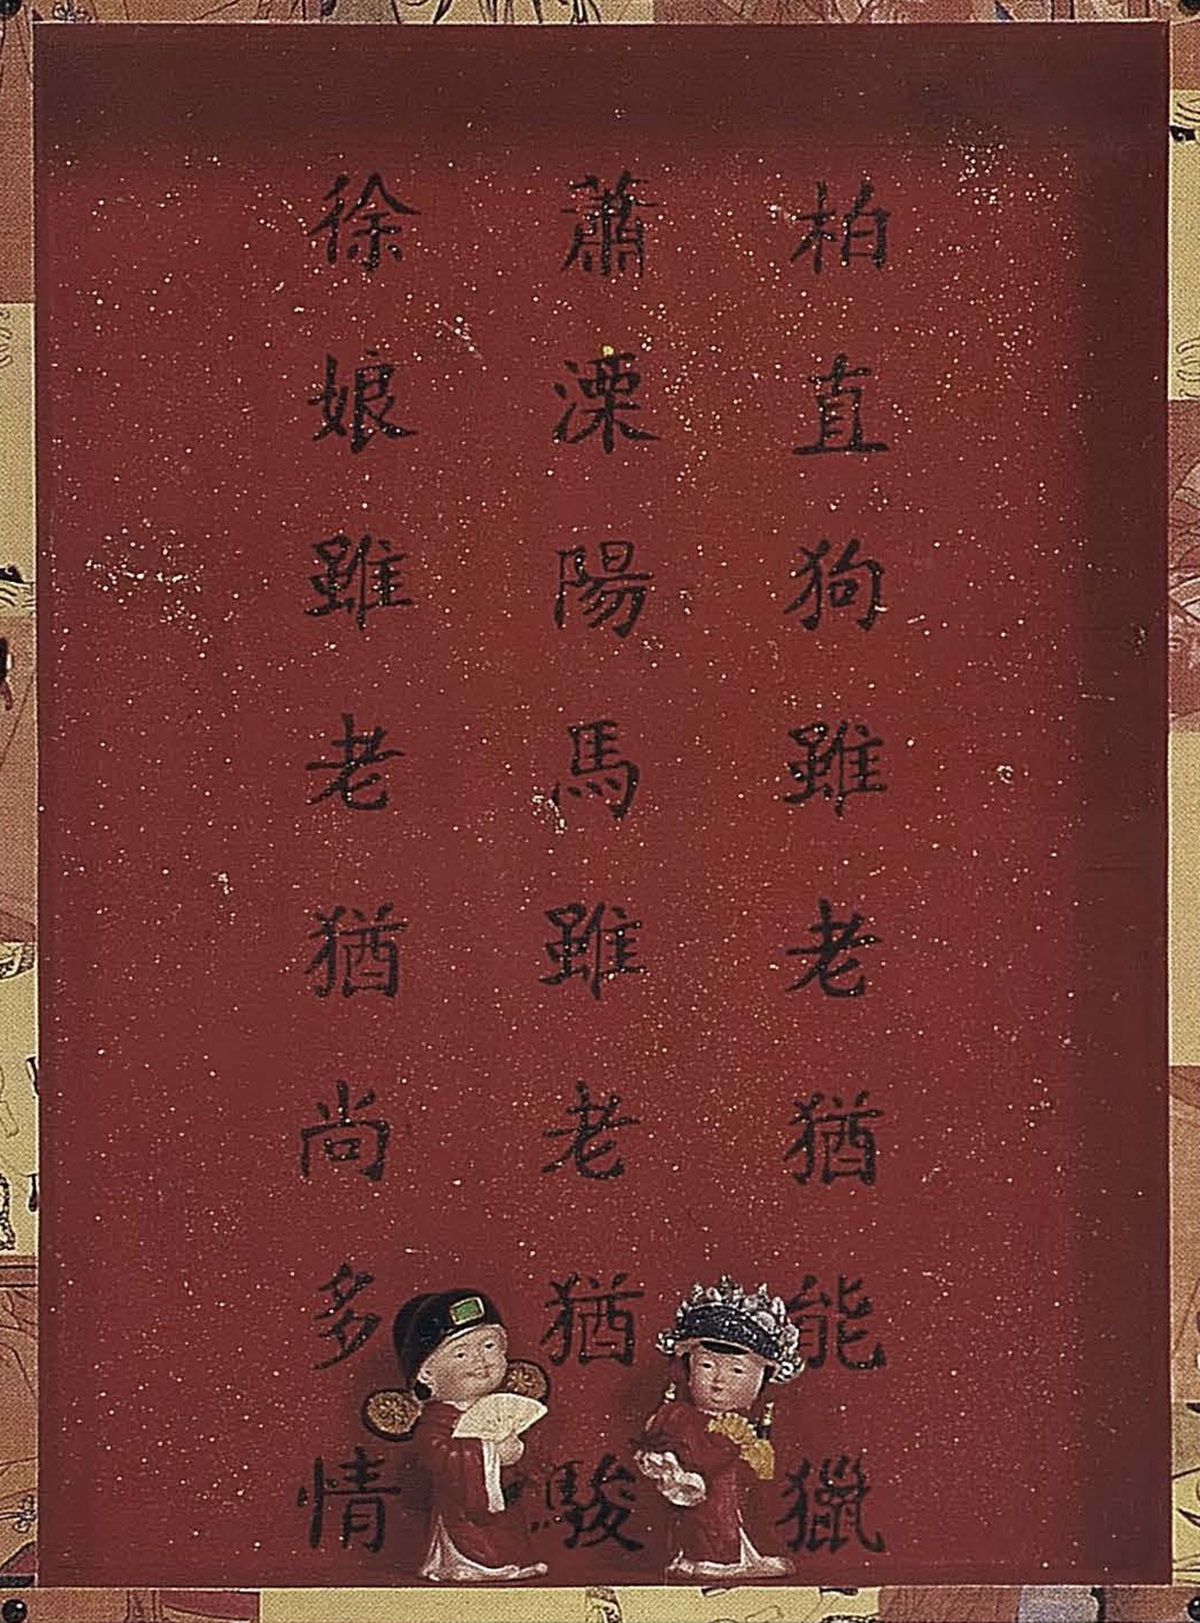 柏直狗雖老猶能獵
蕭溧陽馬雖老猶駿
徐娘雖老猶尚多情